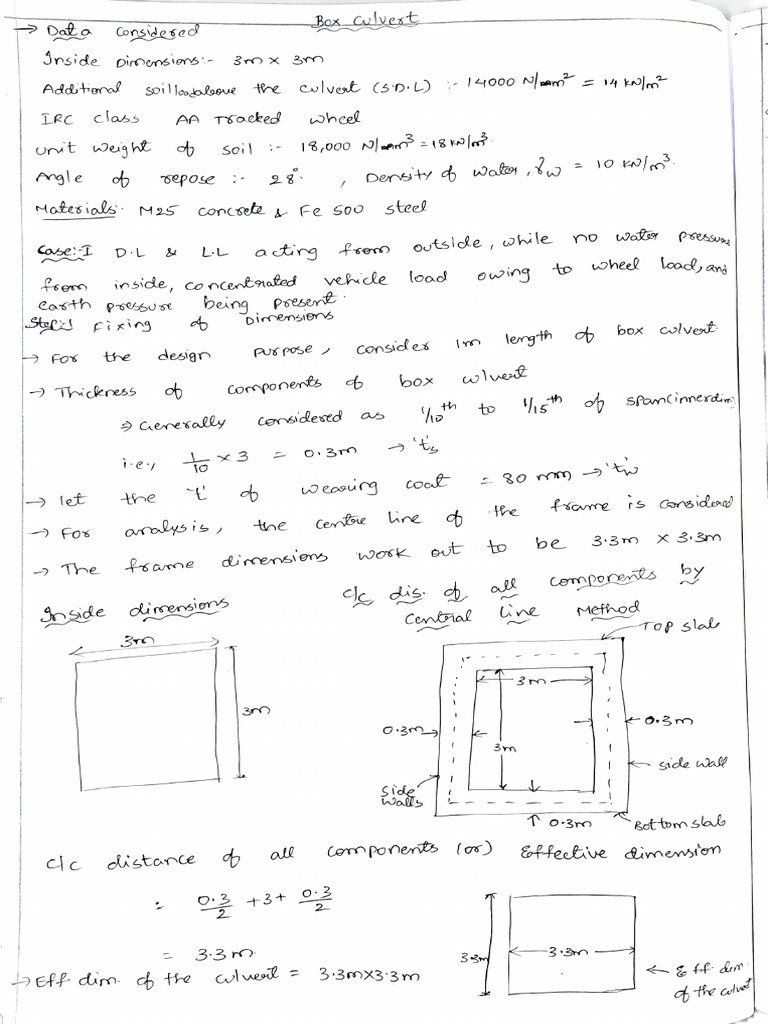 Box culvert
→ Data considered
Inside Dimensions:- 3m x 3m
Additional soil load above the culvert (S.D.L) :- 14000 N/m² = 14 kN/m²
IRC class AA Tracked wheel
unit weight of soil :- 18,000 N/m³ = 18 kN/m³.
Angle of repose :- 28°, Density of water, γw = 10 kN/m³.
Materials: M25 concrete & Fe 500 steel
Case:-I D.L & L.L acting from outside, while no water pressure
from inside, concentrated vehicle load owing to wheel load, and
earth pressure being present.
Step:1 Fixing of Dimensions
→ For the design purpose, consider 1m length of box culvert
→ Thickness of components of box culvert
⇒ Generally considered as 1/10th to 1/15th of span(innerdim)
i.e., 1/10 x 3 = 0.3m → 't's
→ let the 't' of wearing coat = 80 mm → 'tw'
→ For analysis, the centre line of the frame is considered
→ The frame dimensions work out to be 3.3m x 3.3m
Inside dimensions
c/c dis. of all components by
central line Method
3m
3m
Top slab
3m
0.3m
0.3m
3m
side wall
side
walls
0.3m
Bottom slab
c/c distance of all components (or) Effective dimension
= 0.3/2 + 3 + 0.3/2
= 3.3m.
→ Eff dim. of the culvert = 3.3m x 3.3m
3.3m
3.3m
Eff. dim
of the culvert